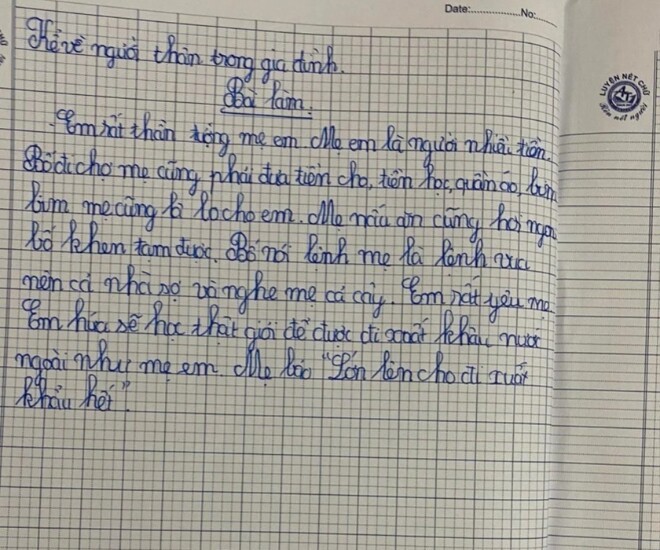 Date:..................No:......
Kể về người thân trong gia đình.
Bài làm.
Em rất thân tộng mẹ em. Mẹ em là người nhiều tiền.
Bố đi chợ mẹ cũng phải đưa tiền cho, tiền học, quần áo, bỉm
lim mẹ cũng là lo cho em. Mẹ nấu ăn cũng hơi ngon
bố khen tạm được. Bố nói lệnh mẹ là lệnh vua
nên cả nhà sợ và nghe mẹ cả cây. Em rất yêu mẹ
Em hứa sẽ học thật giỏi để được đi xuất khẩu nước
ngoài như mẹ em. Mẹ bảo "Lớn lên cho đi xuất
khẩu hết".
LUYỆN NÉT CHỮ
Rèn nết người